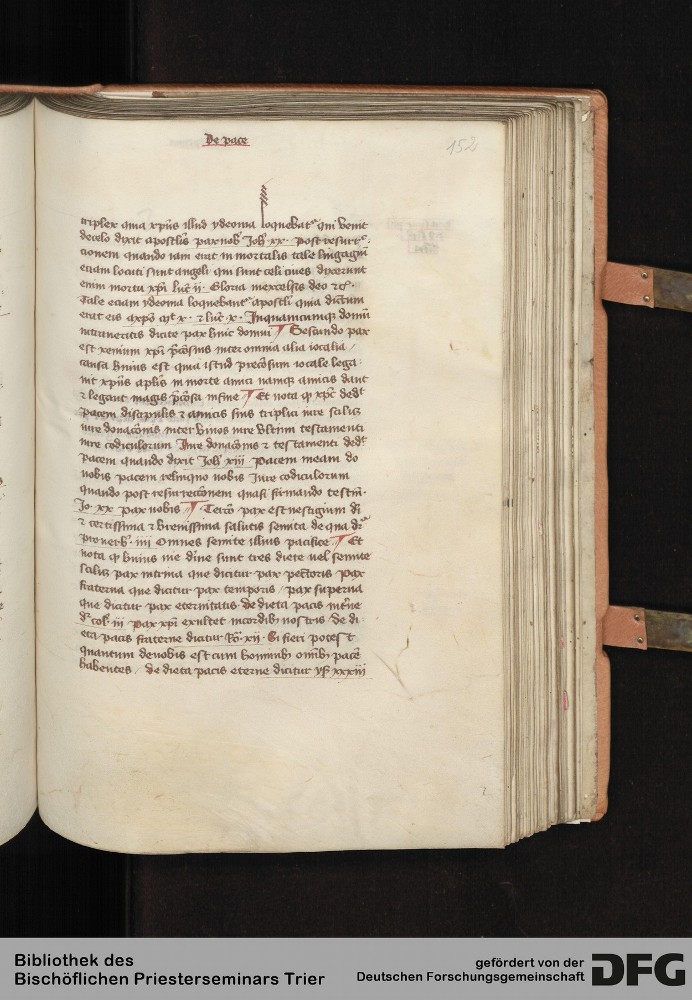 De pace
152
triplex quia xpūs illud ydeoma loquebatr qui venit
decelo dixit apostolis pax nob Joh xx · Post resurrec:
cionem quando iam erat in mortalis tale lingagiū
eciam locuti sunt angeli qui sunt celi ciues dixerunt
enim mortu xpī luc ii · Gloria in excelsis deo ⁊ c̄ ·
Tale eciam ydeoma loquebantr apostoli quia dictum
erat eis axpo mt x · ⁊ luc x · Inquamcumqꝫ domū
intraueritis dicite pax huic domui ¶ Secundo pax
est xenium xpī p̄ciosius inter omnia alia iocalia /
causa huius est quia istud preciosum iocale lega:
uit xpūs aplis in morte amici namqꝫ amicis dant
⁊ legant magis p̄ciosa in fine ¶ Et nota qꝫ xpc dedt
pacem discipulis ⁊ amicis suis triplici iure scilicꝫ
iure donacōnis inter viuos iure vltimi testamenti
iure codicillorum Iure donacōnis ⁊ testamenti dedt
pacem quando dixit Joh xiii Pacem meam do
vobis pacem relinquo vobis Iure codicillorum
quando post resurrectionem quasi firmando testm̄ ·
Jo xx pax vobis ¶ · Tercō pax est vestigium di
⁊ certissima ⁊ breuissima salutis semita de qua dr
prouerb · iii Omnes semite illius pacifice ¶ Et
nota qꝫ huius vie diue sunt tres diete vel semite
scilicꝫ pax intrina que dicitur pax pectoris Pax
fraterna que dicitur pax temporis / pax superna
que dicitur pax eternitatis · de dieta pacis int̄ne
dr col · iii Pax xpī exultet in cordibꝫ nostris · de di:
eta pacis fraterne dicitur Ro · xii · Si fieri potest
quantum de vobis est cum hominibꝫ omibꝫ pacē
habentes / de dieta pacis eterne dicitur ys xxxiii
Bibliothek des
Bischöflichen Priesterseminars Trier
gefördert von der
Deutschen Forschungsgemeinschaft
DFG